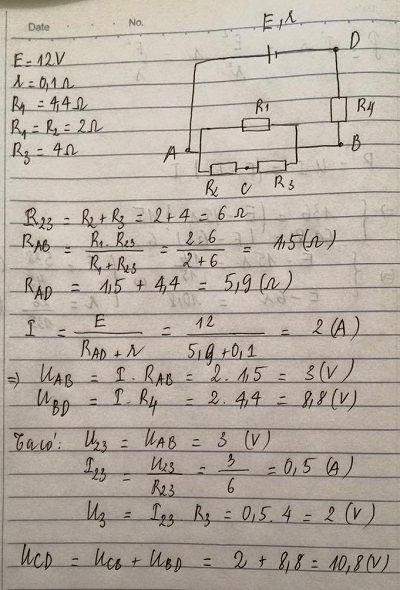 Date No.
E = 12V
r = 0,1Ω
R4 = 4,4Ω
R1 = R2 = 2Ω
R3 = 4Ω
E, r
D
R1
R4
A
B
R2 C R3
R23 = R2 + R3 = 2 + 4 = 6 Ω
RAB = R1. R23 / R1 + R23 = 2.6 / 2+6 = 1,5 (Ω)
RAD = 1,5 + 4,4 = 5,9 (Ω)
I = E / RAD + r = 12 / 5,9 + 0,1 = 2 (A)
⇒ UAB = I . RAB = 2 . 1,5 = 3 (V)
UBD = I . R4 = 2 . 4,4 = 8,8 (V)
Ta có: U23 = UAB = 3 (V)
I23 = U23 / R23 = 3 / 6 = 0,5 (A)
U3 = I23 . R3 = 0,5 . 4 = 2 (V)
UCD = UCB + UBD = 2 + 8,8 = 10,8 (V)